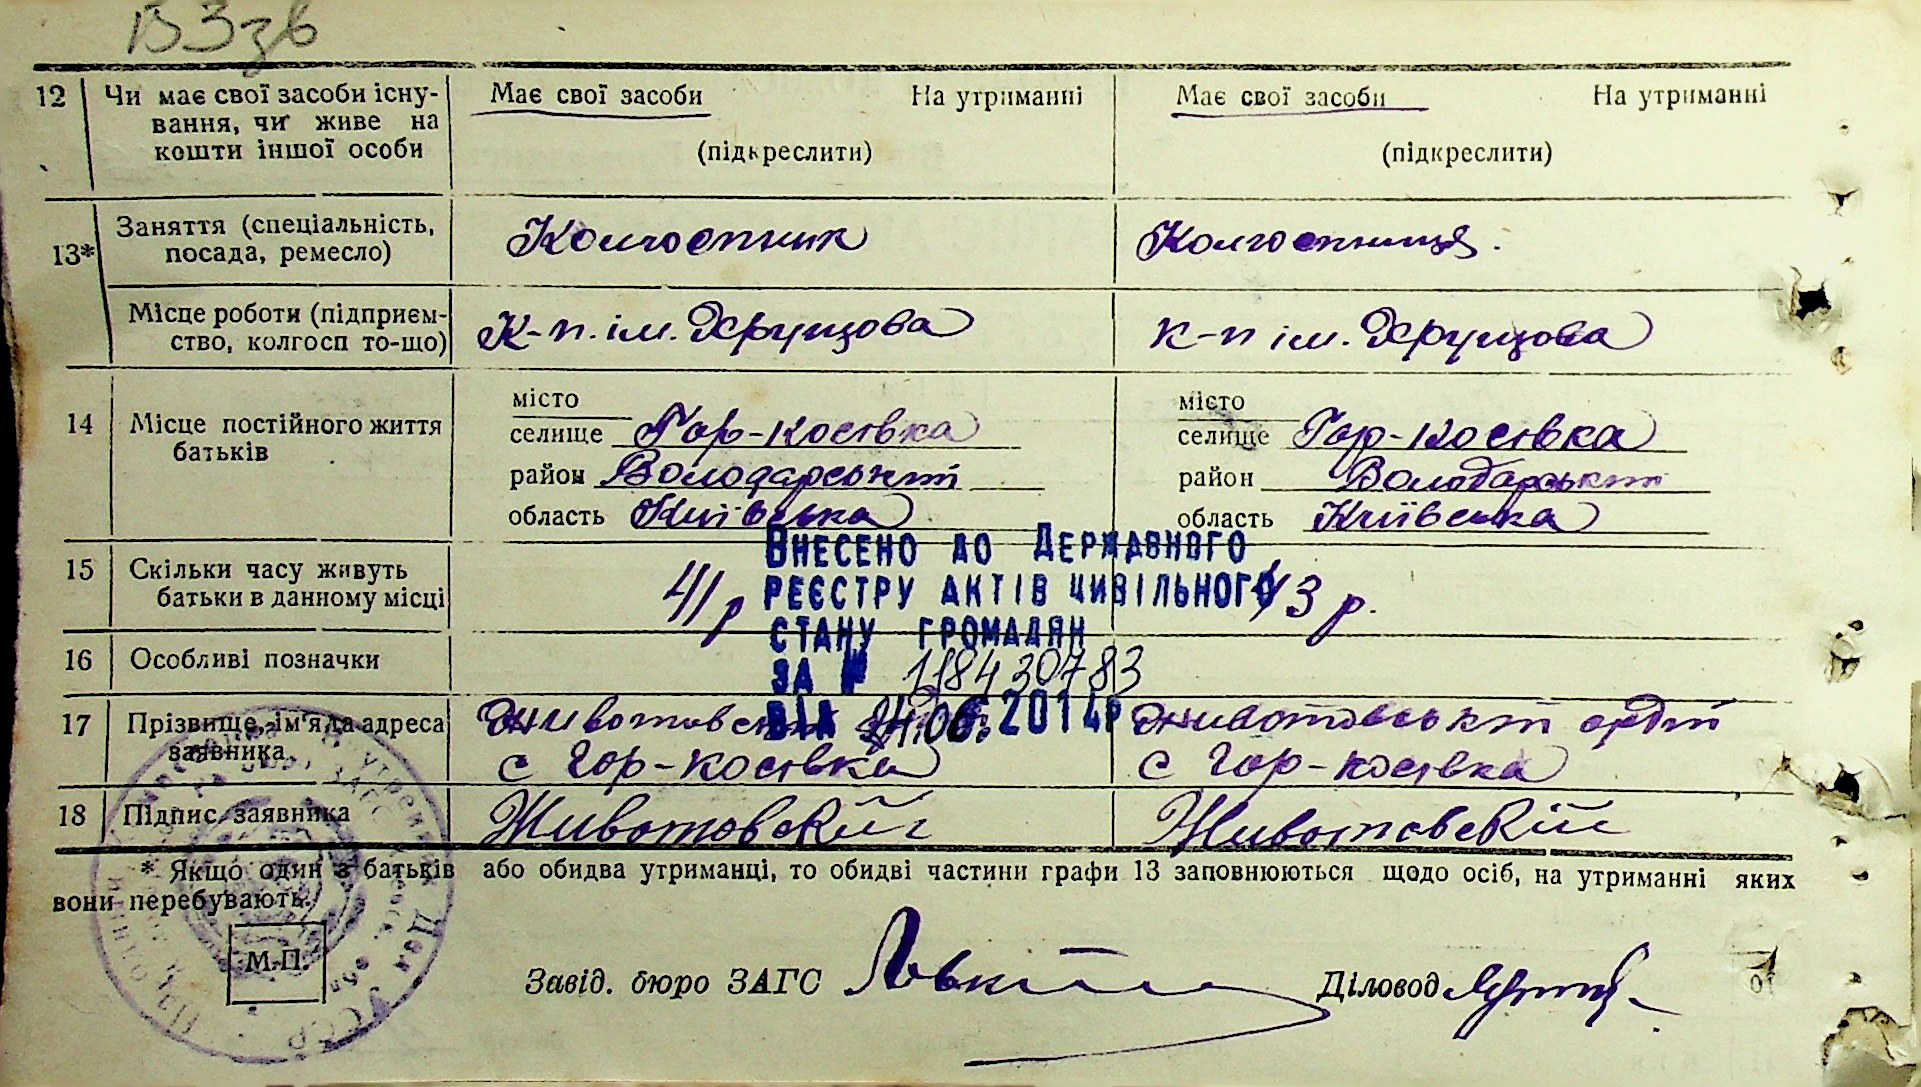 12 Чи має свої засоби існу- Має свої засоби На утриманні Має свої засоби На утриманні
вання, чи живе на
кошти іншої особи (підкреслити) (підкреслити)
13* Заняття (спеціальність, Колгоспник Колгоспниця.
посада, ремесло)
Місце роботи (підприєм- К-п. ім. Хрущова к-п ім. Хрущова
ство, колгосп то-що)
місто місто
14 Місце постійного життя селище Гор-Косівка селище Гор-Косівка
батьків район Володарський район Володарський
область Київська область Київська
Внесено до Державного
15 Скільки часу живуть 41 р реєстру актів цивільного 43 р.
батьки в данному місці
стану громадян
16 Особливі позначки за № 1184 30783
17 Прізвище, ім'я да адреса Животовський від 24.06.2014р Животовський
заявника с Гор-Косівка с Гор-Косівка
18 Підпис заявника Животовский Животовский
* Якщо один з батьків або обидва утриманці, то обидві частини графи 13 заповнюються щодо осіб, на утриманні яких
вони перебувають.
М.П.
Завід. бюро ЗАГС Діловод